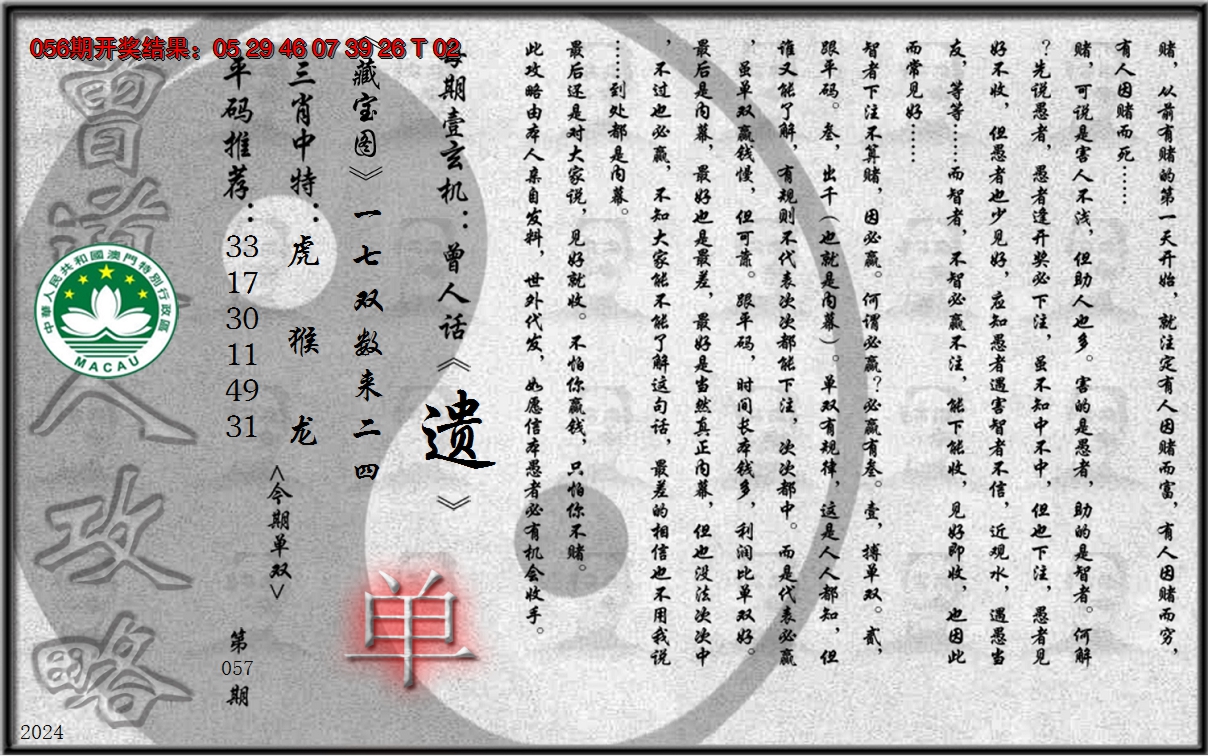 056期开奖结果：05 29 46 07 39 26 T 02
赌，从前有赌的第一天开始，就注定有人因赌而富，有人因赌而穷，
有人因赌而死……
赌，可说是害人不浅，但助人也多。害的是愚者，助的是智者。何解
？先说愚者，愚者逢开奖必下注，虽不知中不中，但也下注，愚者见
好不收，但愚者也少见好，应知愚者遇害智者不信，近观水，遇愚当
友，等等……而智者，不智必赢不注，能下能收，见好即收，也因此
而常见好……
智者下注不算赌，因必赢。何谓必赢？必赢有叁。壹，搏单双。贰，
跟平码。叁，出千（也就是内幕）。单双有规律，这是人人都知，但
谁又能了解，有规则不代表次次都能下注，次次都中。而是代表必赢
，虽单双赢钱慢，但可靠。跟平码，时间长本钱多，利润比单双好。
最后是内幕，最好也是最差，最好是当然真正内幕，但也没法次次中
，不过也必赢，不知大家能不能了解这句话，最差的相信也不用我说
……到处都是内幕。
最后还是对大家说，见好就收。不怕你赢钱，只怕你不赌。
此攻略由本人亲自发料，世外代发，如愿信本愚者必有机会收手。
每期壹玄机：曾人话《遗》
《藏宝图》一七双数来二四
单
三肖中特：虎 猴 龙
<今期单双>
平码推荐：33 17 30 11 49 31
第057期
曾道人攻略
中華人民共和國澳門特別行政區
MACAU
2024